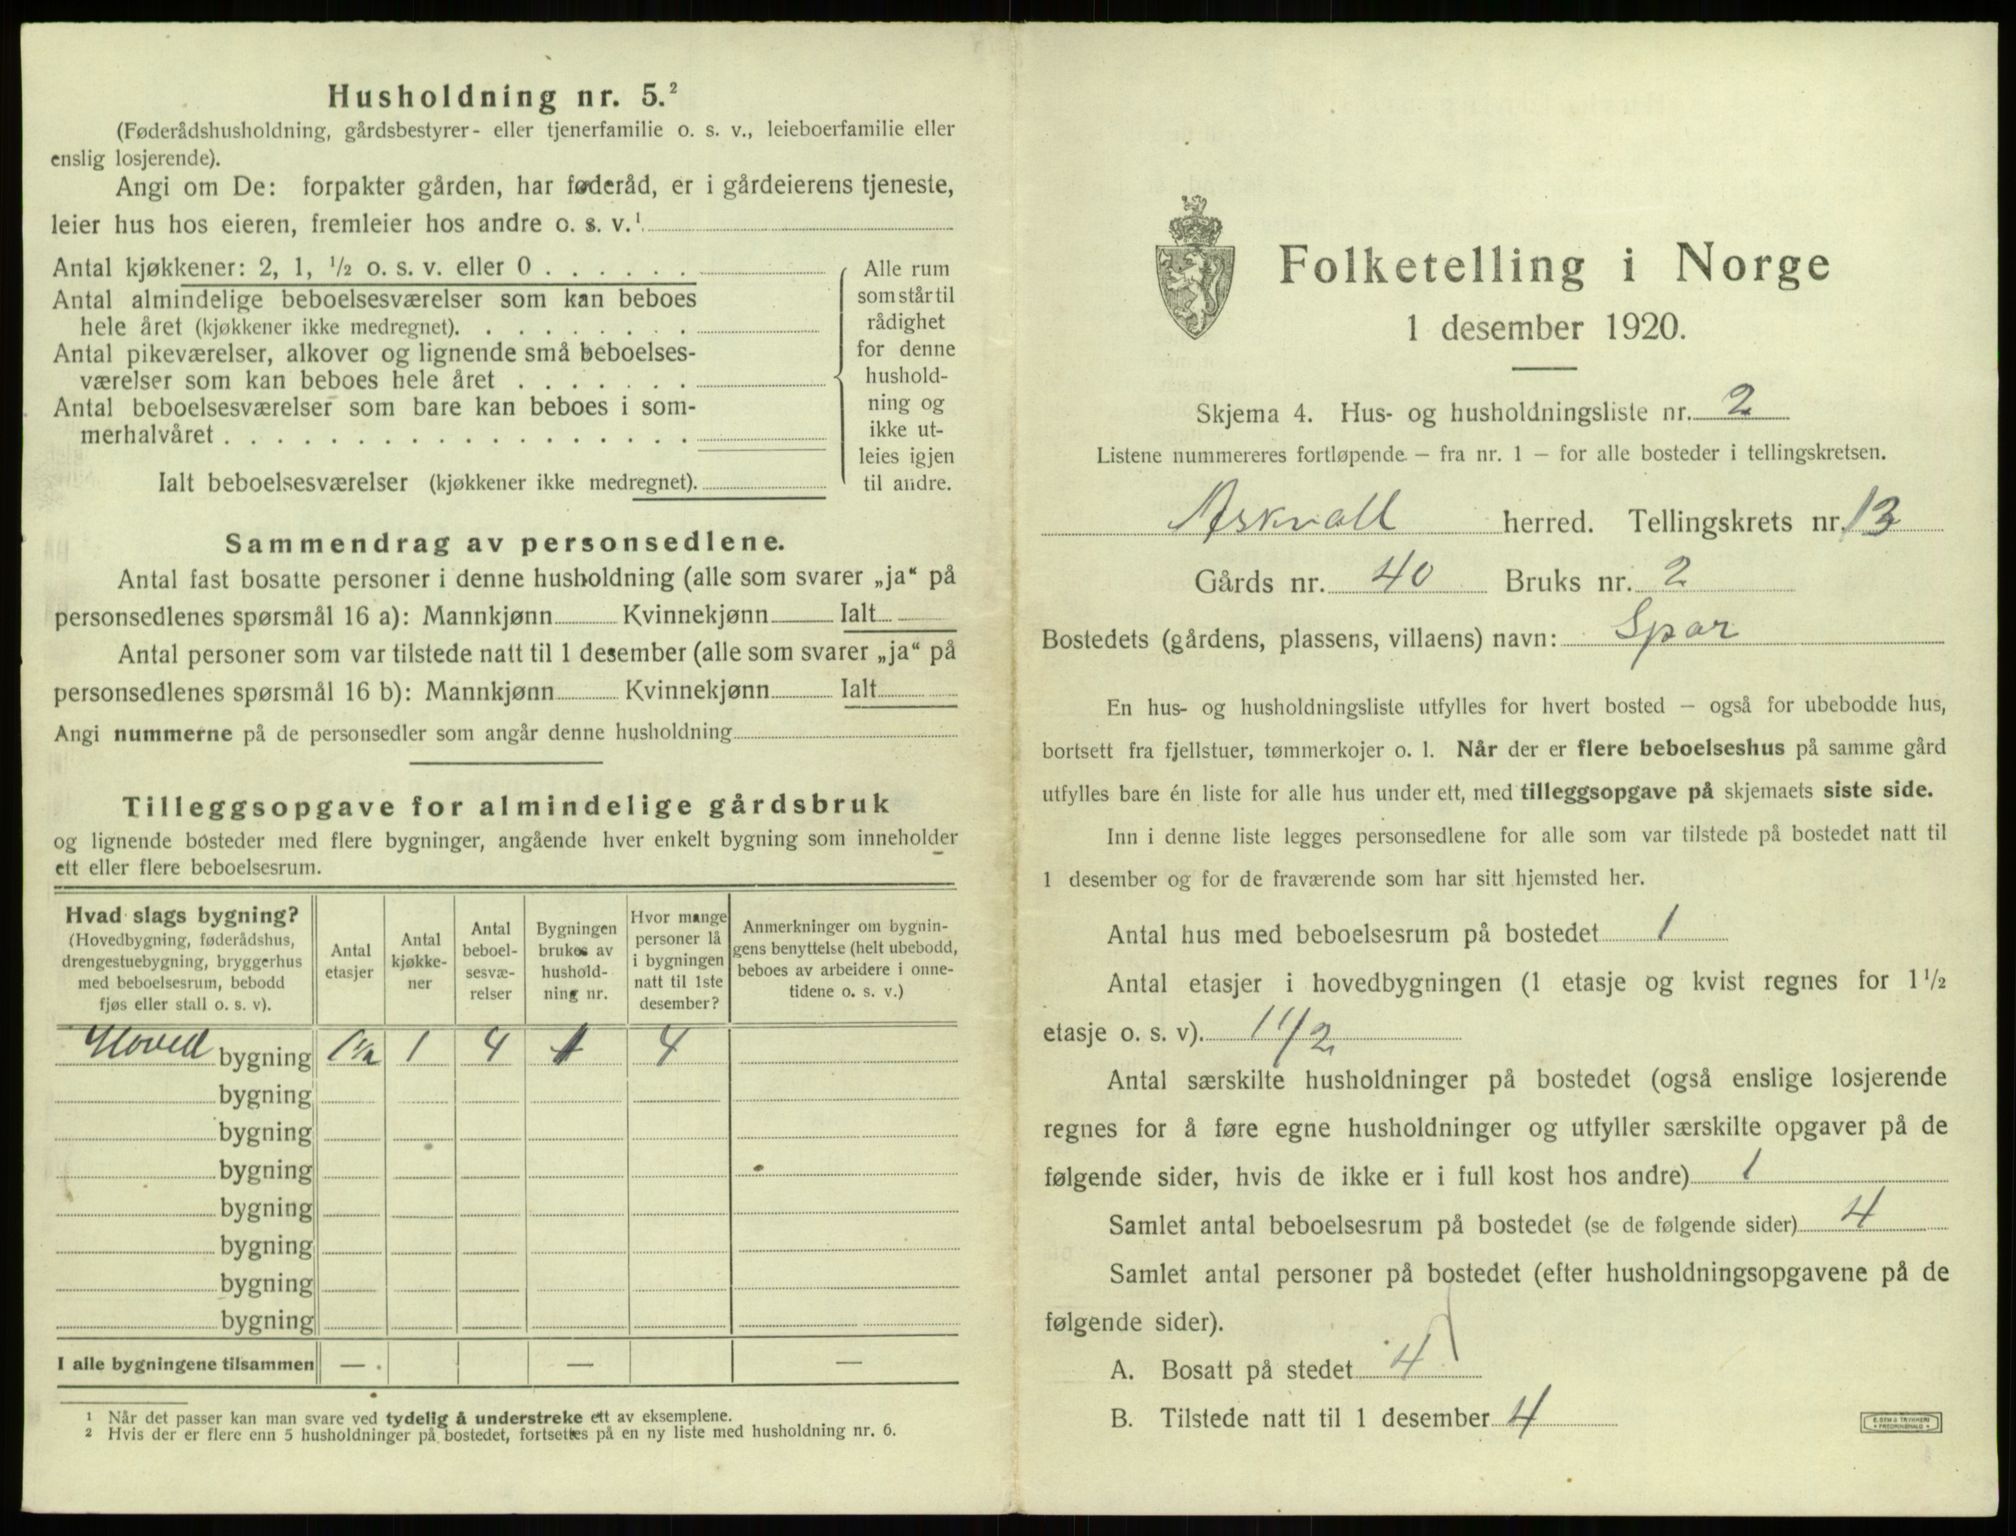 Husholdning nr. 5.²
(Føderådshusholdning, gårdsbestyrer- eller tjenerfamilie o. s. v., leieboerfamilie eller
enslig losjerende).
Angi om De: forpakter gården, har føderåd, er i gårdeierens tjeneste,
leier hus hos eieren, fremleier hos andre o. s. v.¹
Antal kjøkkener: 2, 1, ½ o. s. v. eller 0 . . . . . .
Antal almindelige beboelsesværelser som kan beboes
hele året (kjøkkener ikke medregnet). . . . . . . . .
Antal pikeværelser, alkover og lignende små beboelses-
værelser som kan beboes hele året . . . . . . .
Antal beboelsesværelser som bare kan beboes i som-
merhalvåret . . . . . . . . . . . . . . . . . .
Ialt beboelsesværelser (kjøkkener ikke medregnet).
Alle rum
som står til
rådighet
for denne
hushold-
ning og
ikke ut-
leies igjen
til andre.
Sammendrag av personsedlene.
Antal fast bosatte personer i denne husholdning (alle som svarer „ja“ på
personsedlenes spørsmål 16 a): Mannkjønn Kvinnekjønn Ialt
Antal personer som var tilstede natt til 1 desember (alle som svarer „ja“ på
personsedlenes spørsmål 16 b): Mannkjønn Kvinnekjønn Ialt
Angi nummerne på de personsedler som angår denne husholdning
Tilleggsopgave for almindelige gårdsbruk
og lignende bosteder med flere bygninger, angående hver enkelt bygning som inneholder
ett eller flere beboelsesrum.
Hvad slags bygning?
(Hovedbygning, føderådshus,
drengestuebygning, bryggerhus
med beboelsesrum, bebodd
fjøs eller stall o. s. v).
Antal
etasjer
Antal
kjøkke-
ner
Antal
beboel-
sesvæ-
relser
Bygningen
brukes av
hushold-
ning nr.
Hvor mange
personer lå
i bygningen
natt til 1ste
desember?
Anmerkninger om bygnin-
gens benyttelse (helt ubebodd,
beboes av arbeidere i onne-
tidene o. s. v.)
Hoved bygning 1½ 1 4 1 4
bygning
bygning
bygning
bygning
bygning
bygning
bygning
I alle bygningene tilsammen — — —
¹ Når det passer kan man svare ved tydelig å understreke ett av eksemplene.
² Hvis der er flere enn 5 husholdninger på bostedet, fortsettes på en ny liste med husholdning nr. 6.
Folketelling i Norge
1 desember 1920.
Skjema 4. Hus- og husholdningsliste nr. 2
Listene nummereres fortløpende – fra nr. 1 – for alle bosteder i tellingskretsen.
Askvoll herred. Tellingskrets nr. 13
Gårds nr. 40 Bruks nr. 2
Bostedets (gårdens, plassens, villaens) navn: Spor
En hus- og husholdningsliste utfylles for hvert bosted – også for ubebodde hus,
bortsett fra fjellstuer, tømmerkojer o. l. Når der er flere beboelseshus på samme gård
utfylles bare én liste for alle hus under ett, med tilleggsopgave på skjemaets siste side.
Inn i denne liste legges personsedlene for alle som var tilstede på bostedet natt til
1 desember og for de fraværende som har sitt hjemsted her.
Antal hus med beboelsesrum på bostedet 1
Antal etasjer i hovedbygningen (1 etasje og kvist regnes for 1½
etasje o. s. v). 1 1/2
Antal særskilte husholdninger på bostedet (også enslige losjerende
regnes for å føre egne husholdninger og utfyller særskilte opgaver på de
følgende sider, hvis de ikke er i full kost hos andre) 1
Samlet antal beboelsesrum på bostedet (se de følgende sider) 4
Samlet antal personer på bostedet (efter husholdningsopgavene på de
følgende sider).
A. Bosatt på stedet 4
B. Tilstede natt til 1 desember 4